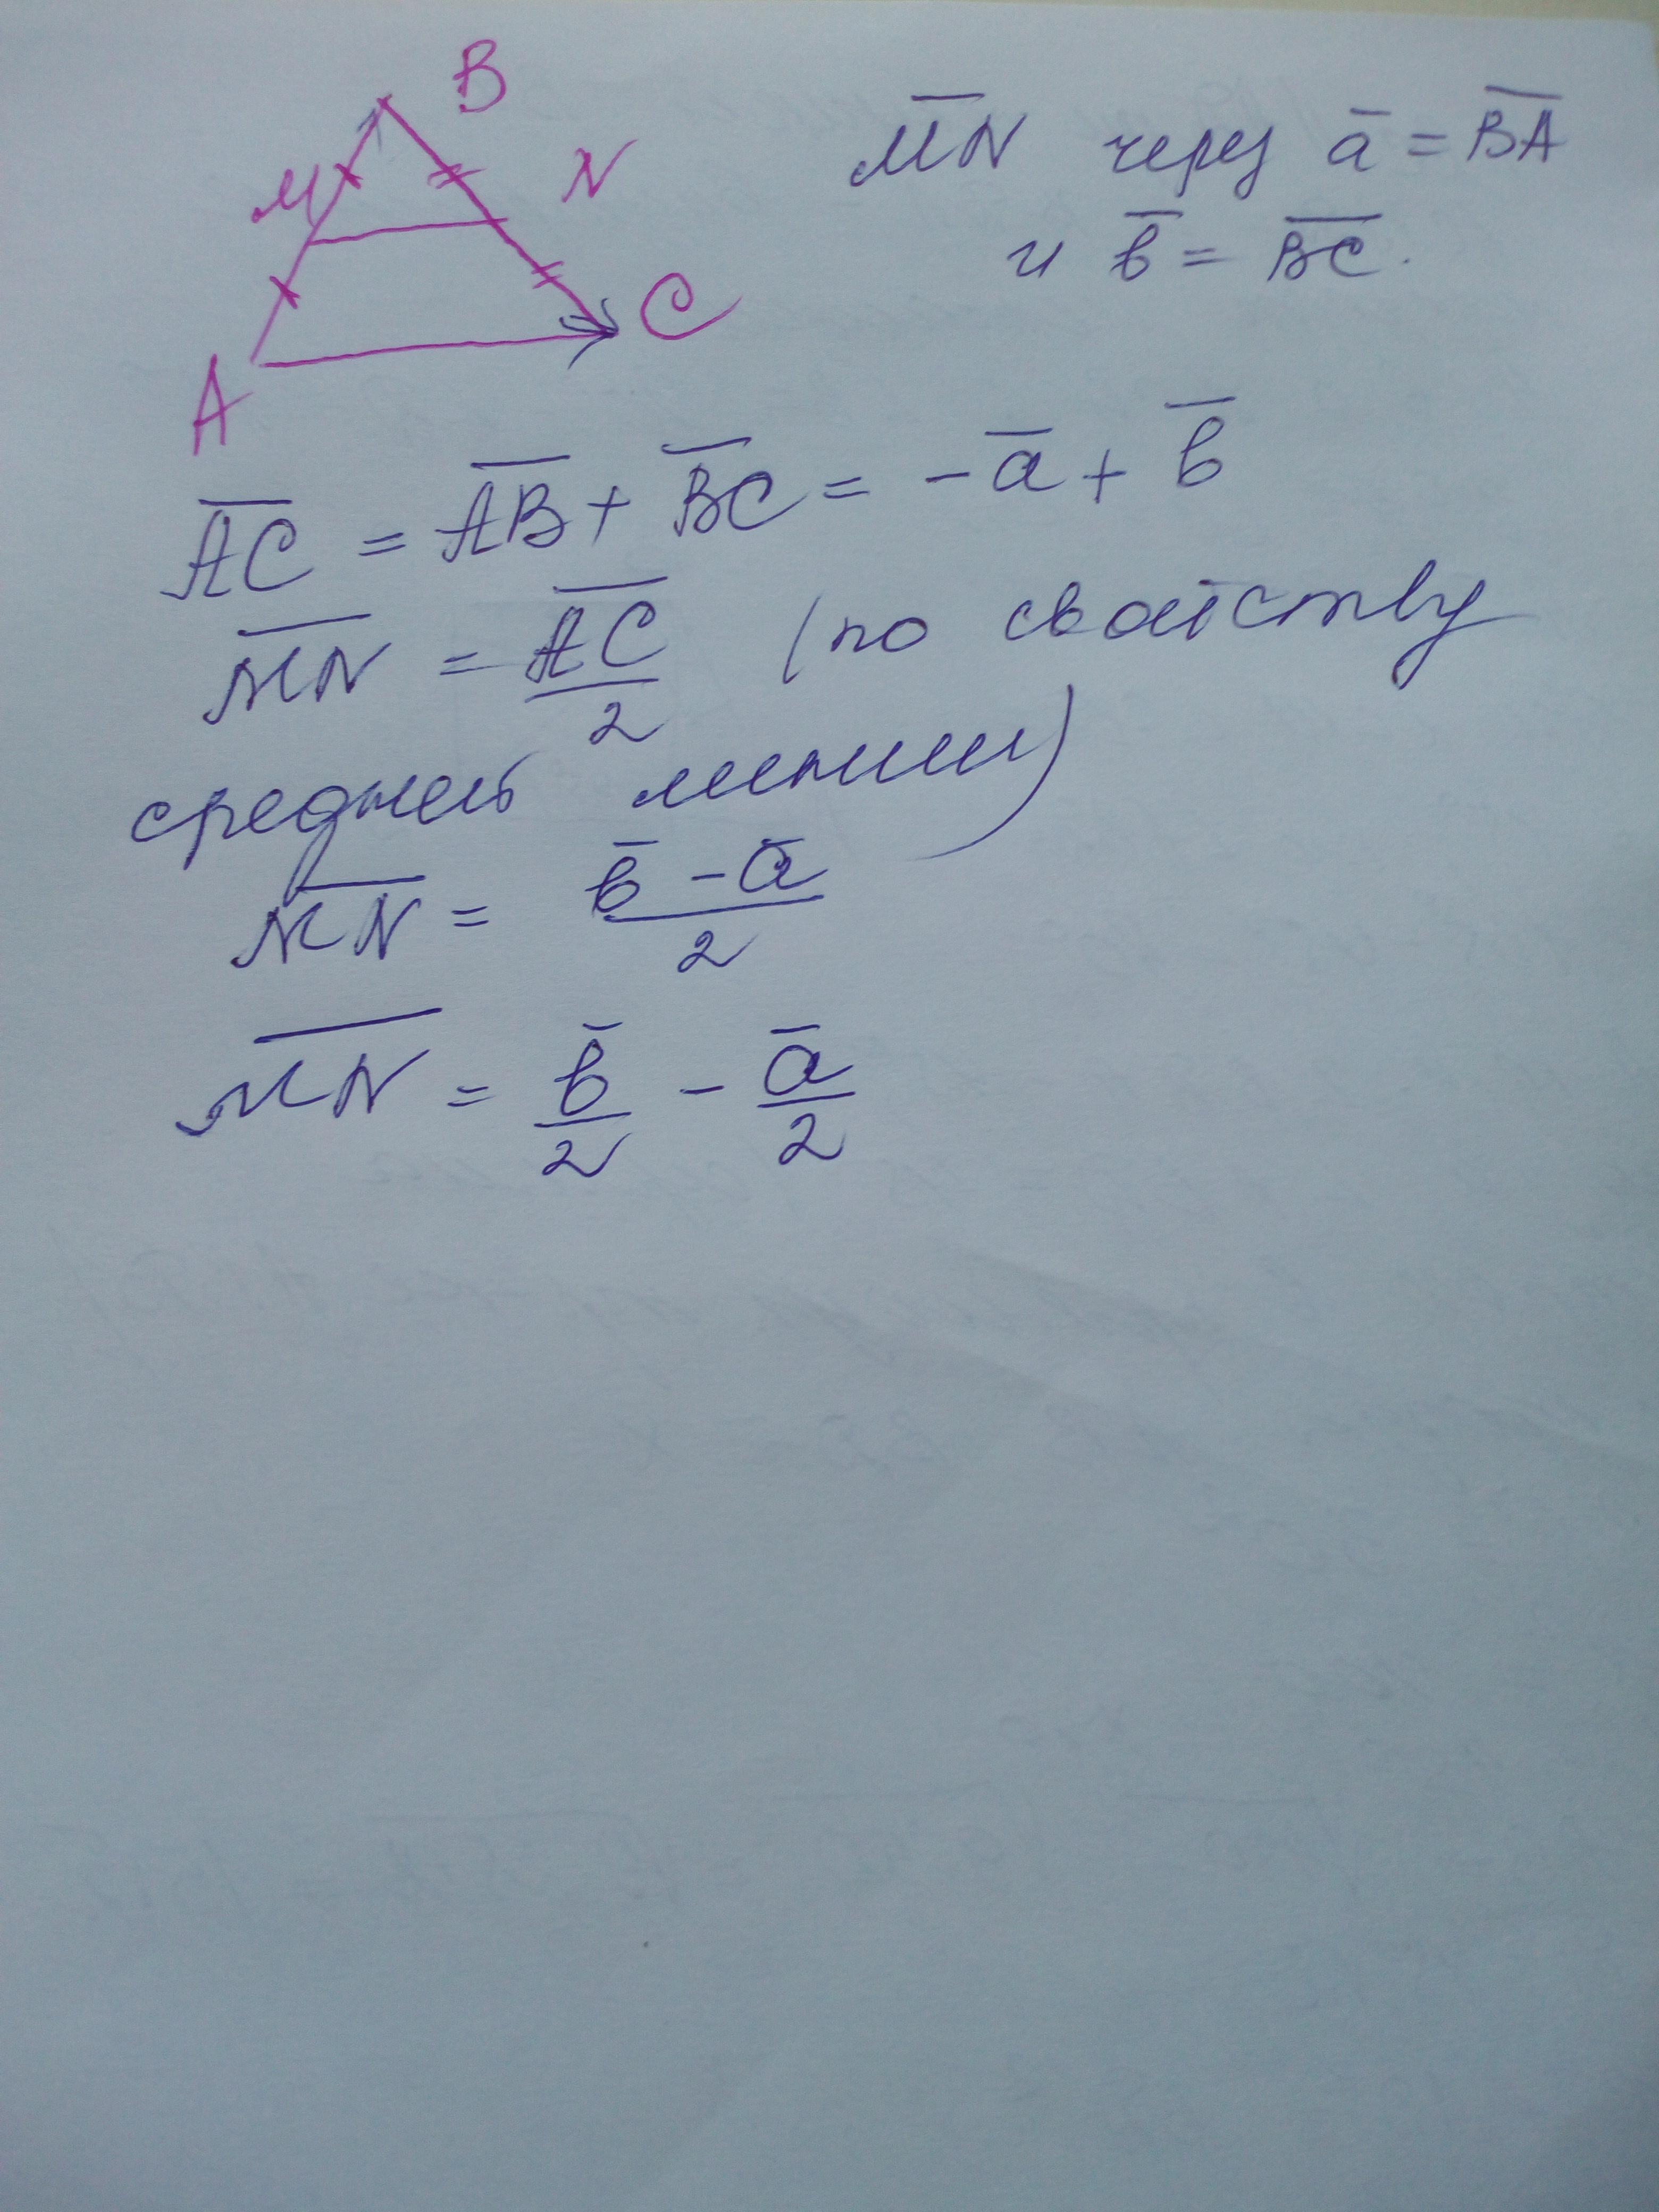 B
M N
A C
M̅N̅ через a̅ = B̅A̅
и b̅ = B̅C̅.
A̅C̅ = A̅B̅ + B̅C̅ = -a̅ + b̅
M̅N̅ = A̅C̅/2 (по свойству
средней линии)
M̅N̅ = (b̅ - a̅)/2
M̅N̅ = b̅/2 - a̅/2